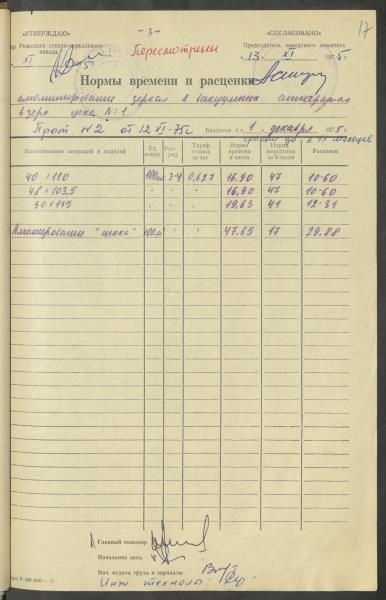 17
- 3 -
«УТВЕРЖДАЮ»
«СОГЛАСОВАНО»
Рижского стекло-зеркального
завода
Пересмотрены
Председатель заводского комитета
XI
13. XI 1975г.
Нормы времени и расценки
алюминирование зеркал в вакуумных аппаратах
в зерк. цеха № 1
Прот. № 2 от 12 XI-75г
Вводится с „1 декабря 1975г.
сроком до 2х месяцев
Наименование операций и изделий
Ед. измер.
Раз-ряд
Тариф. ставка за час
Норма времени в часах
Норма выработки за 8 часов
Расценок
40 х 110 100шт 3-4 0,627 16,90 47 10-60
48 х 103,5 " " 16,90 47 10-60
50 х 115 " " 19,63 41 12-31
Алюмирование 100м 47.65 17 29.88
Главный инженер
Начальник цеха
Нач. отдела труда и зарплаты
Инж. технолог: